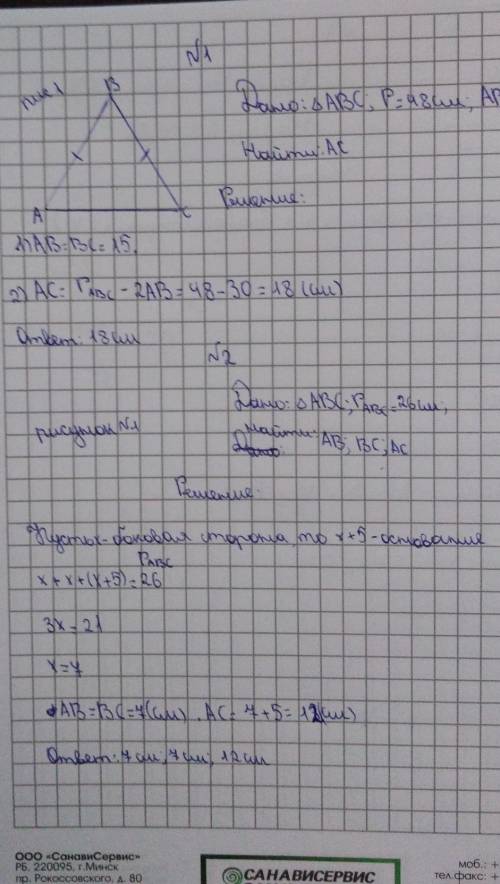 №1
рис 1
B
Дано: △ABC; P=48см; AB
Найти: AC
Решение:
A
C
1) AB=BC=15.
2) AC= P_ABC - 2AB = 48 - 30 = 18 (см)
Ответ: 18см
№2
Дано: △ABC; P_ABC=26см;
рисунок №1
найти: AB; BC; AC
Решение:
Пусть x-боковая сторона, то x+5-основание
P_ABC
x+x+(x+5)=26
3x=21
x=7
AB=BC=7(см). AC= 7+5=12(см)
Ответ: 7см; 7см; 12см
ООО «СанавиСервис»
РБ, 220095, г.Минск
пр. Рокоссовского, д. 80
САНАВИСЕРВИС
моб.: +
тел.факс: +